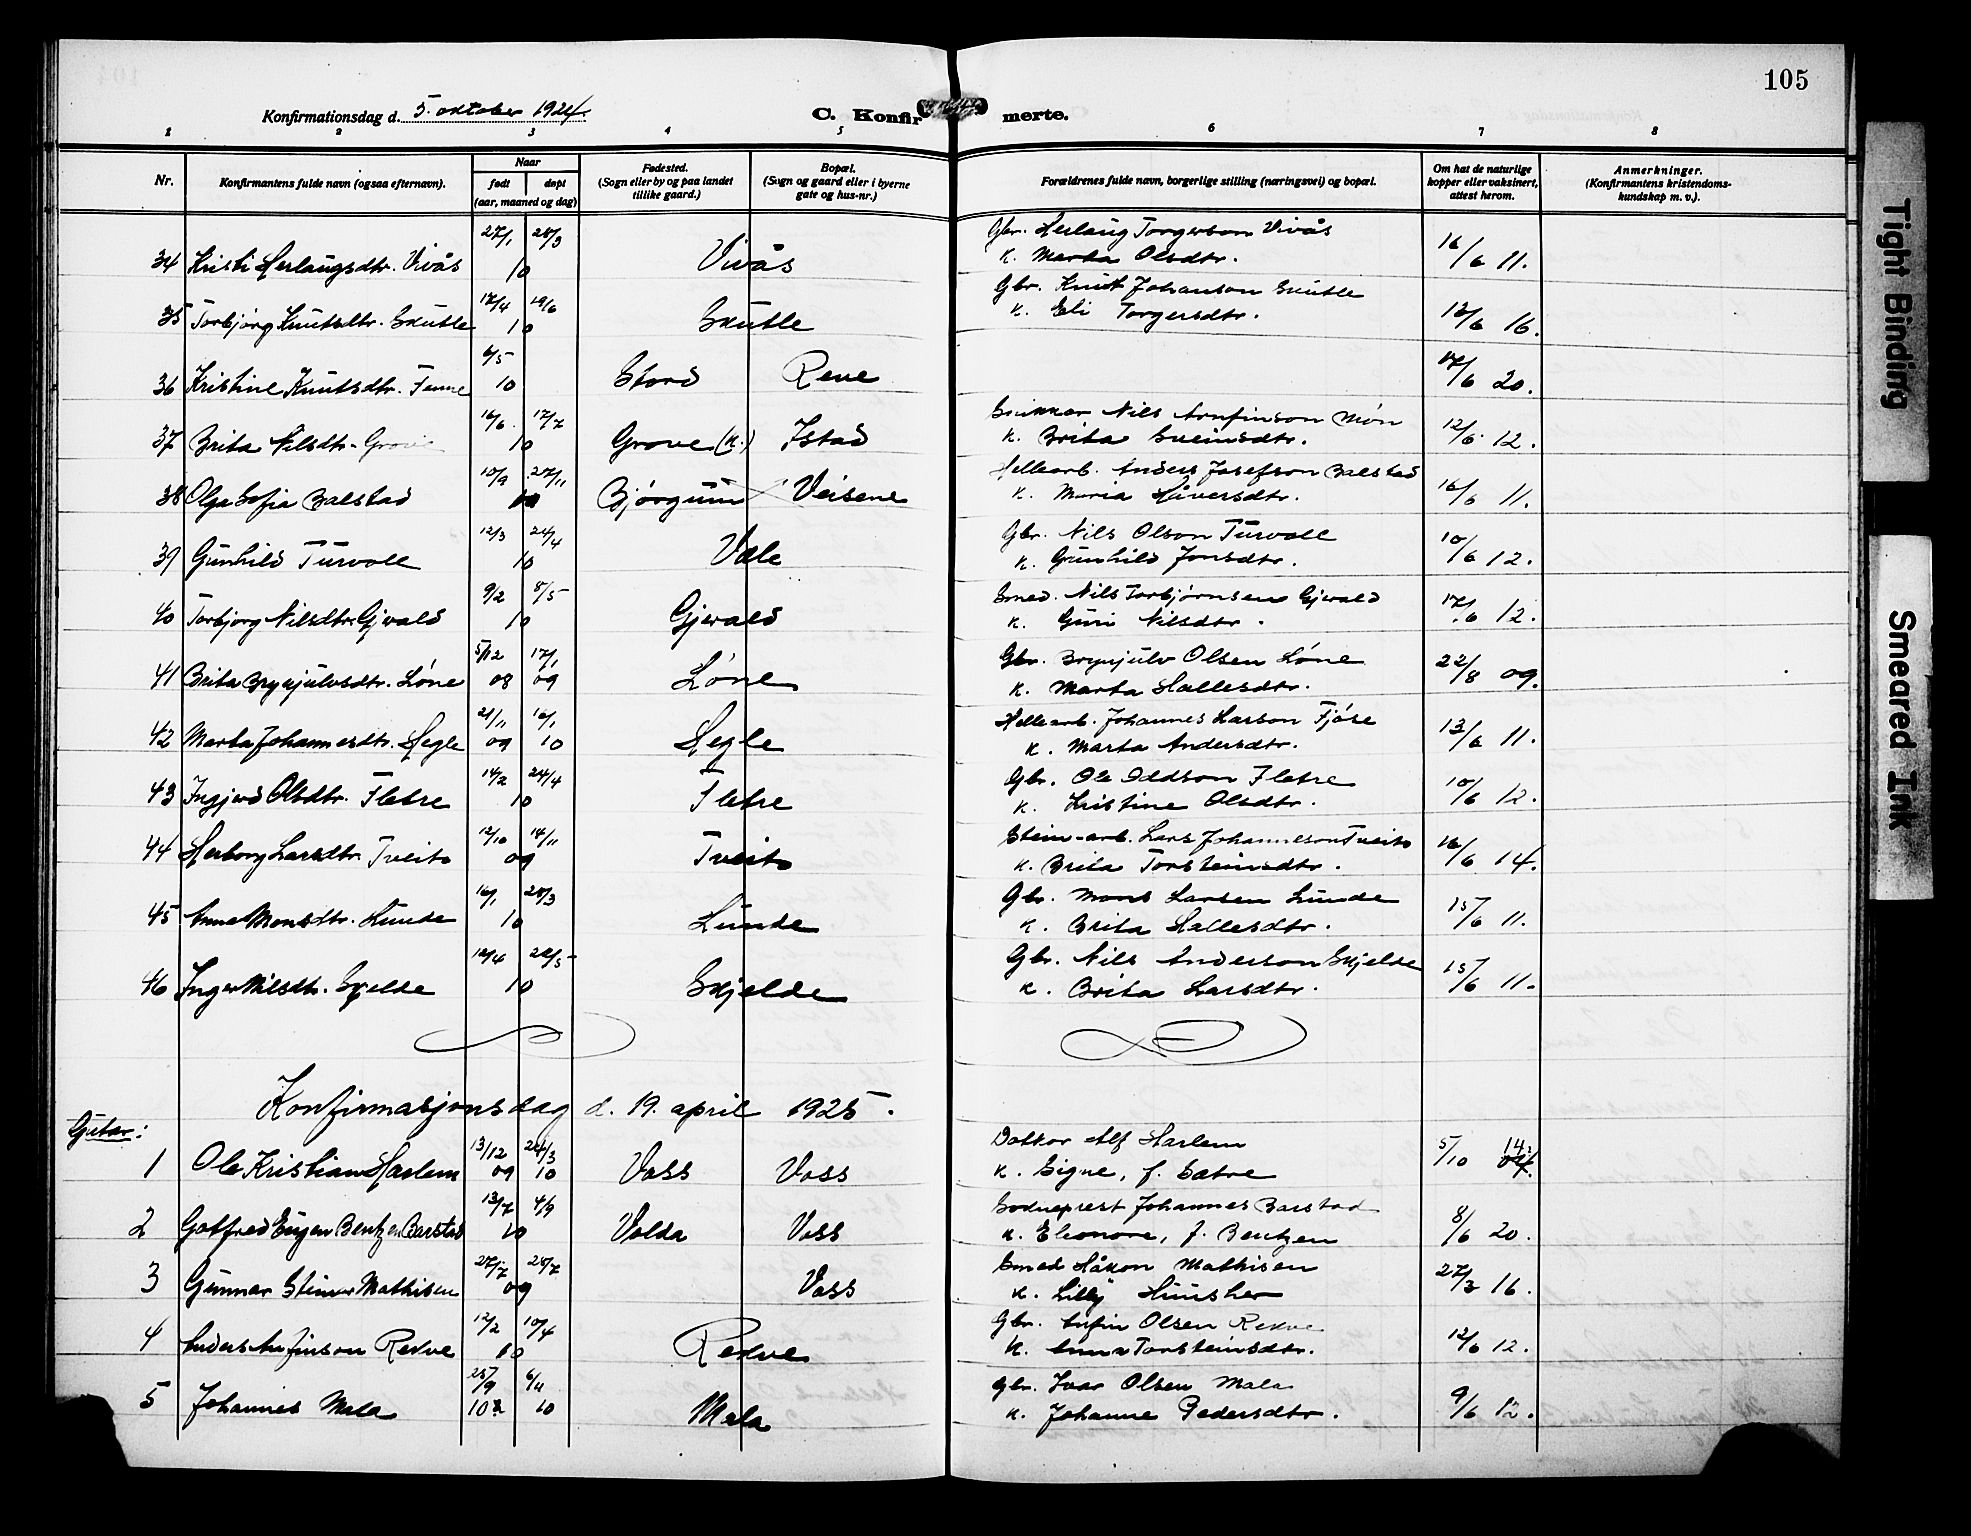 105
Konfirmationsdag d. 5. oktober 1924.
C. Konfirmerte.
1 2 3 4 5 6 7 8
Nr.
Konfirmantens fulde navn (ogsaa efternavn).
Naar
født døpt
(aar, maaned og dag)
Fødested.
(Sogn eller by og paa landet
tillike gaard.)
Bopæl.
(Sogn og gaard eller i byerne
gate og hus-nr.)
Forældrenes fulde navn, borgerlige stilling (næringsvei) og bopæl.
Om hat de naturlige
kopper eller vaksinert,
attest herom.
Anmerkninger.
(Konfirmantens kristendoms-
kundskap m. v.).
27/1 28/3 Gbr. Herlaug Torgerson Vivås
34 Kristi Herlaugsdtr. Vivås 10 Vivås K. Marta Olsdtr. 16/6 11.
17/4 19/6 Gbr. Knut Johanson Skutle
35 Torbjørg Knutsdtr. Skutle 10 Skutle K. Eli Torgersdtr. 12/6 16.
6/5
36 Kristine Knutsdtr. Fenne 10 Stord Rene 17/6 20.
16/6 17/7 Snikkar Nils Arnfinson Møn
37 Brita Nilsdtr. Grove 10 Grove (K.) Istad K. Brita Sveinsdtr. 12/6 12.
10/9 27/11 Hellearb. Anders Josefson Balstad
38 Olga Sofia Balstad 09 Bjørgum Veisene K. Maria Håversdtr. 16/6 11.
12/3 24/4 Gbr. Nils Olson Turvoll
39 Gunhild Turvoll 10 Vole K. Gunhild Jonsdtr. 10/6 12.
9/2 8/5 Smed. Nils Torbjørnsen Gjerald
40 Torbjorg Nilsdtr. Gjvald 10 Gjerald K. Guri Nilsdtr. 17/6 12.
5/12 17/1 Gbr. Brynjulv Olsen Løne
41 Brita Brynjulvsdtr. Løne 08 09 Løne K. Marta Hallesdtr. 22/8 09.
21/11 16/1 Hellearb. Johannes Larson Fjøse
42 Marta Johannesdtr. Hegle 09 10 Hegle K. Marta Andersdtr. 13/6 11.
14/2 24/4 Gbr. Ole Oddson Fletre
43 Ingjerd Olsdtr. Fletre 10 Fletre K. Kristine Olsdtr. 10/6 12.
12/10 14/11 Stein-arb. Lars Johanneson Tveito
44 Herborg Larsdtr. Tveito 09 Tveito K. Brita Torsteinsdtr. 16/6 14.
16/1 28/3 Gbr. Mons Larsen Lunde
45 Anna Monsdtr. Lunde 10 Lunde K. Brita Hallesdtr. 15/6 11.
12/4 22/5 Gbr. Nils Anderson Skjelde
46 Inger Nilsdtr. Skjelde 10 Skjelde K. Brita Larsdtr. 15/6 11.
Konfirmasjonsdag d. 19. april 1925.
Gutar:
13/12 24/3 Doktor Alf Harlem
1 Ole Kristian Harlem 09 10 Voss Voss K. Signe, f. Sætre 5/10 14.
13/7 4/9 Sokneprest Johannes Barstad
2 Gotfred Eugen Bentzen Barstad 10 Volda Voss K. Eleonore, f. Bentzen 8/6 20.
27/7 28/7 Smed Håkon Mathisen
3 Gunnar Steinar Mathisen 09 Voss K. Lilly 27/3 16.
12/2 10/4 Gbr. Anfin Olsen Rekve
4 Anders Anfinson Rekve 10 Rekve K. Anna Torsteinsdtr. 12/6 12.
25/9 6/11 Gbr. Ivar Olsen Mala
5 Johannes Mala 10 10 Mala K. Johanne Pedersdtr. 9/6 12.
Tight Binding
Smeared Ink